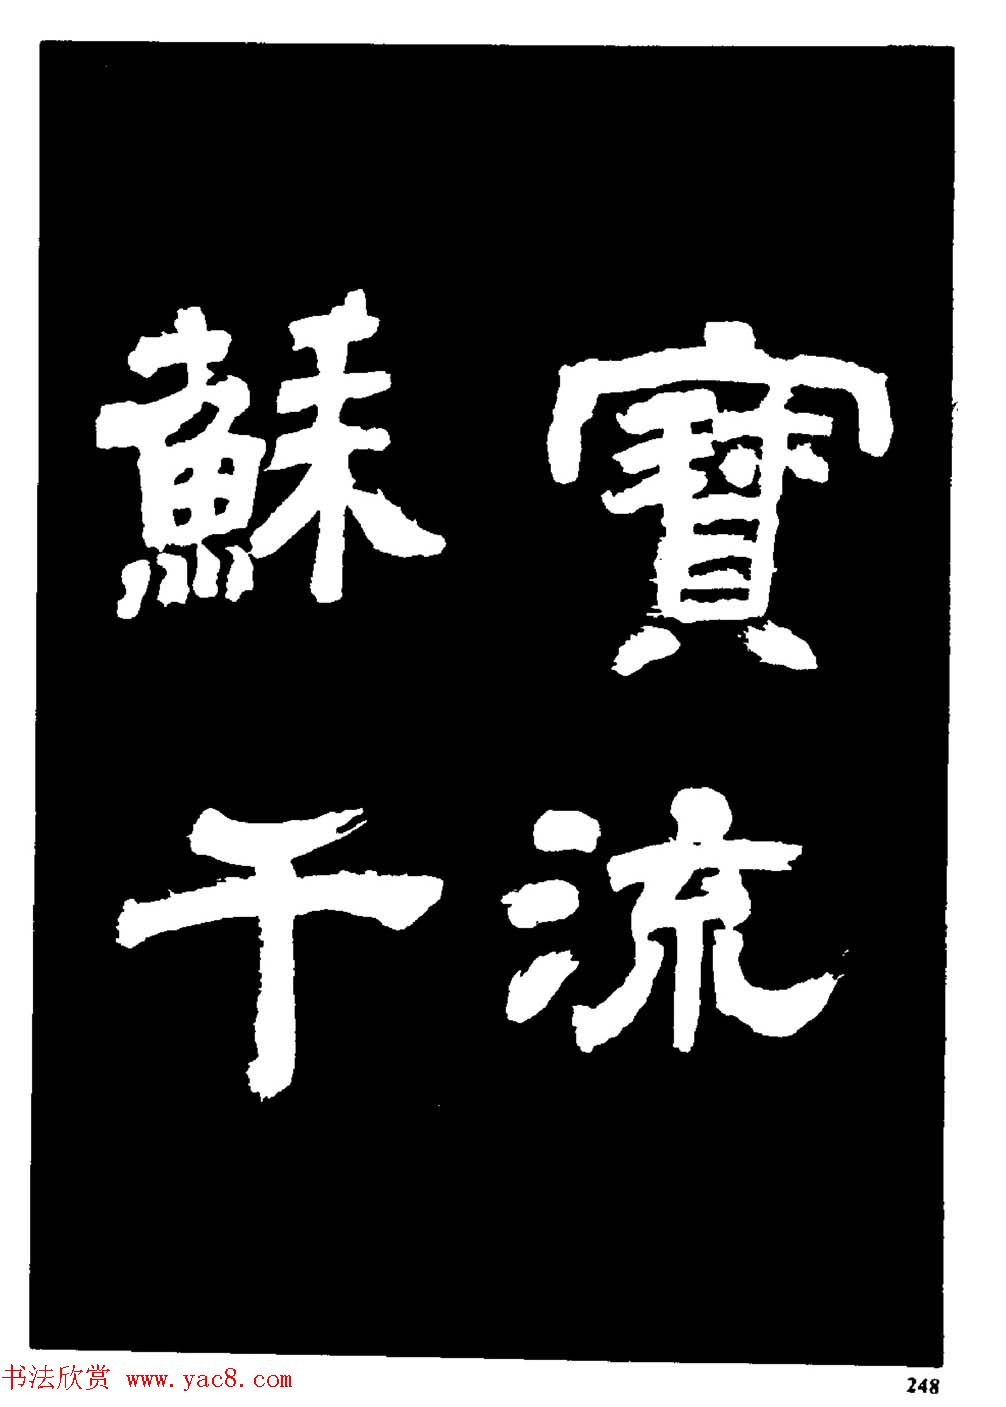 寶流
蘇千
书法欣赏 www.yac8.com
248